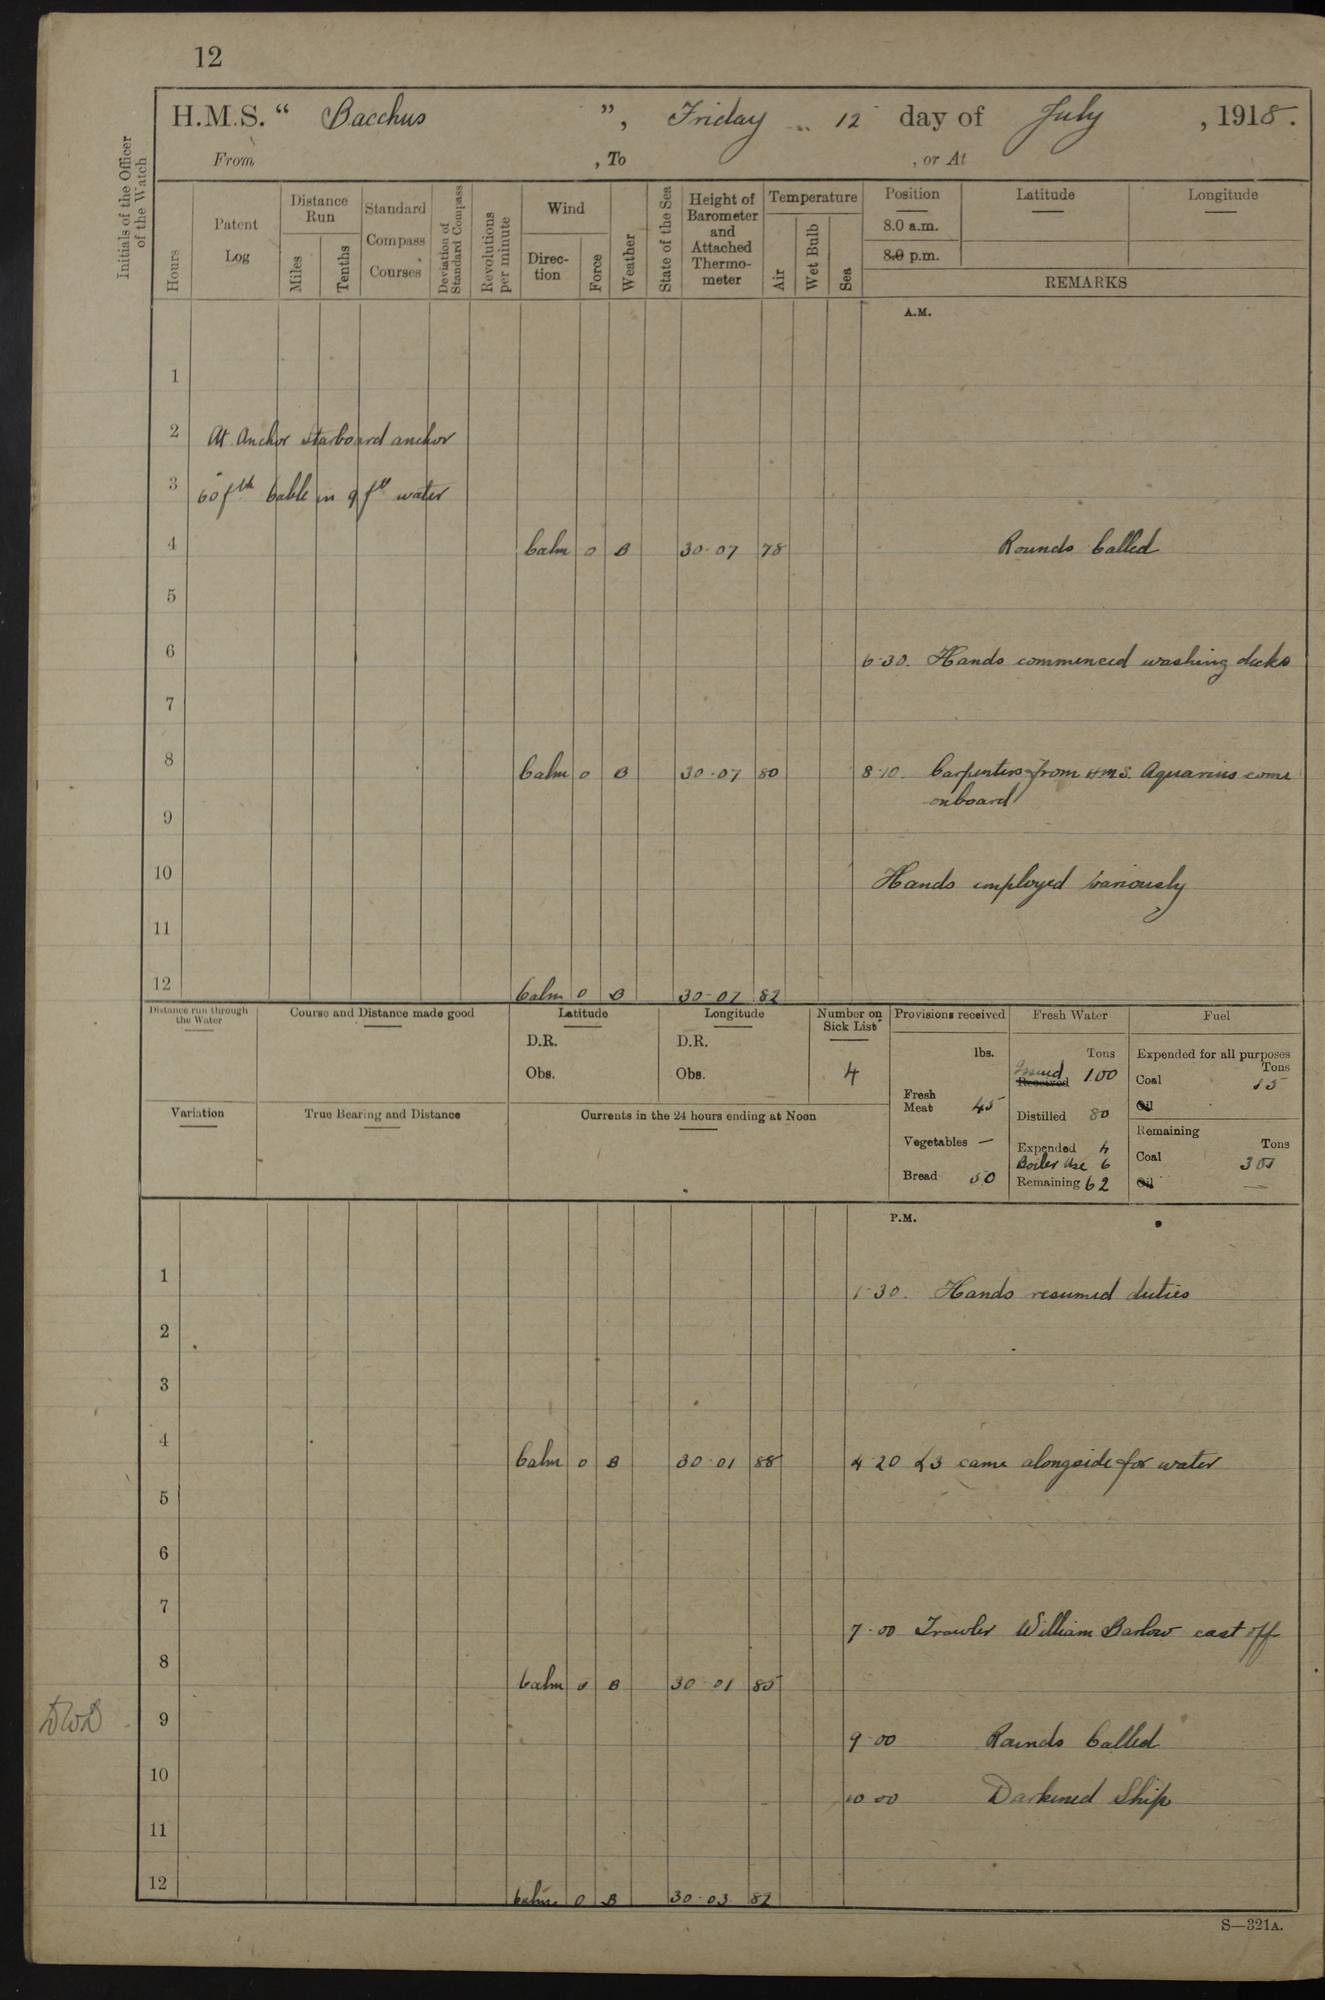 12
H.M.S. “ Bacchus ”, Friday 12 day of July, 1918.
From , To , or At
Initials of the Officer of the Watch
Hours
Patent Log
Distance Run
Miles
Tenths
Standard Compass Courses
Deviation of Standard Compass
Revolutions per minute
Wind
Direction
Force
Weather
State of the Sea
Height of Barometer and Attached Thermometer
Temperature
Air
Wet Bulb
Sea
Position Latitude Longitude
8.0 a.m.
8.0 p.m.
REMARKS
A.M.
1
2 At Anchor starboard anchor
3 60 fth Cable in 9 fth water
4 Calm 0 B 30·07 78 Rounds Called
5
6 6·30. Hands commenced washing decks
7
8 Calm 0 B 30·07 80 8·10. Carpenters from HMS. Aquarius come
onboard
9
10 Hands employed variously
11
12 Calm 0 B 30·07 82
Distance run through the Water
Course and Distance made good
Latitude
D.R.
Obs.
Longitude
D.R.
Obs.
Number on Sick List
4
Provisions received
lbs.
Fresh Meat 45
Vegetables —
Bread 50
Fresh Water
Tons
Issued Received 100
Distilled 80
Expended 4
Boiler use 6
Remaining 62
Fuel
Expended for all purposes
Tons
Coal 15
Oil
Remaining
Tons
Coal
Oil —
Variation
True Bearing and Distance
Currents in the 24 hours ending at Noon
P.M.
1 1·30. Hands resumed duties
2
3
4 Calm 0 B 30·01 88 4·20 L3 came alongside for water
5
6
7 7·00 Trawler William Barlow cast off
8 Calm 0 B 30·01 85
9 9·00 Rounds Called
10 10·00 Darkened Ship
11
12 Calm 0 B 30·03 82
S—321A.